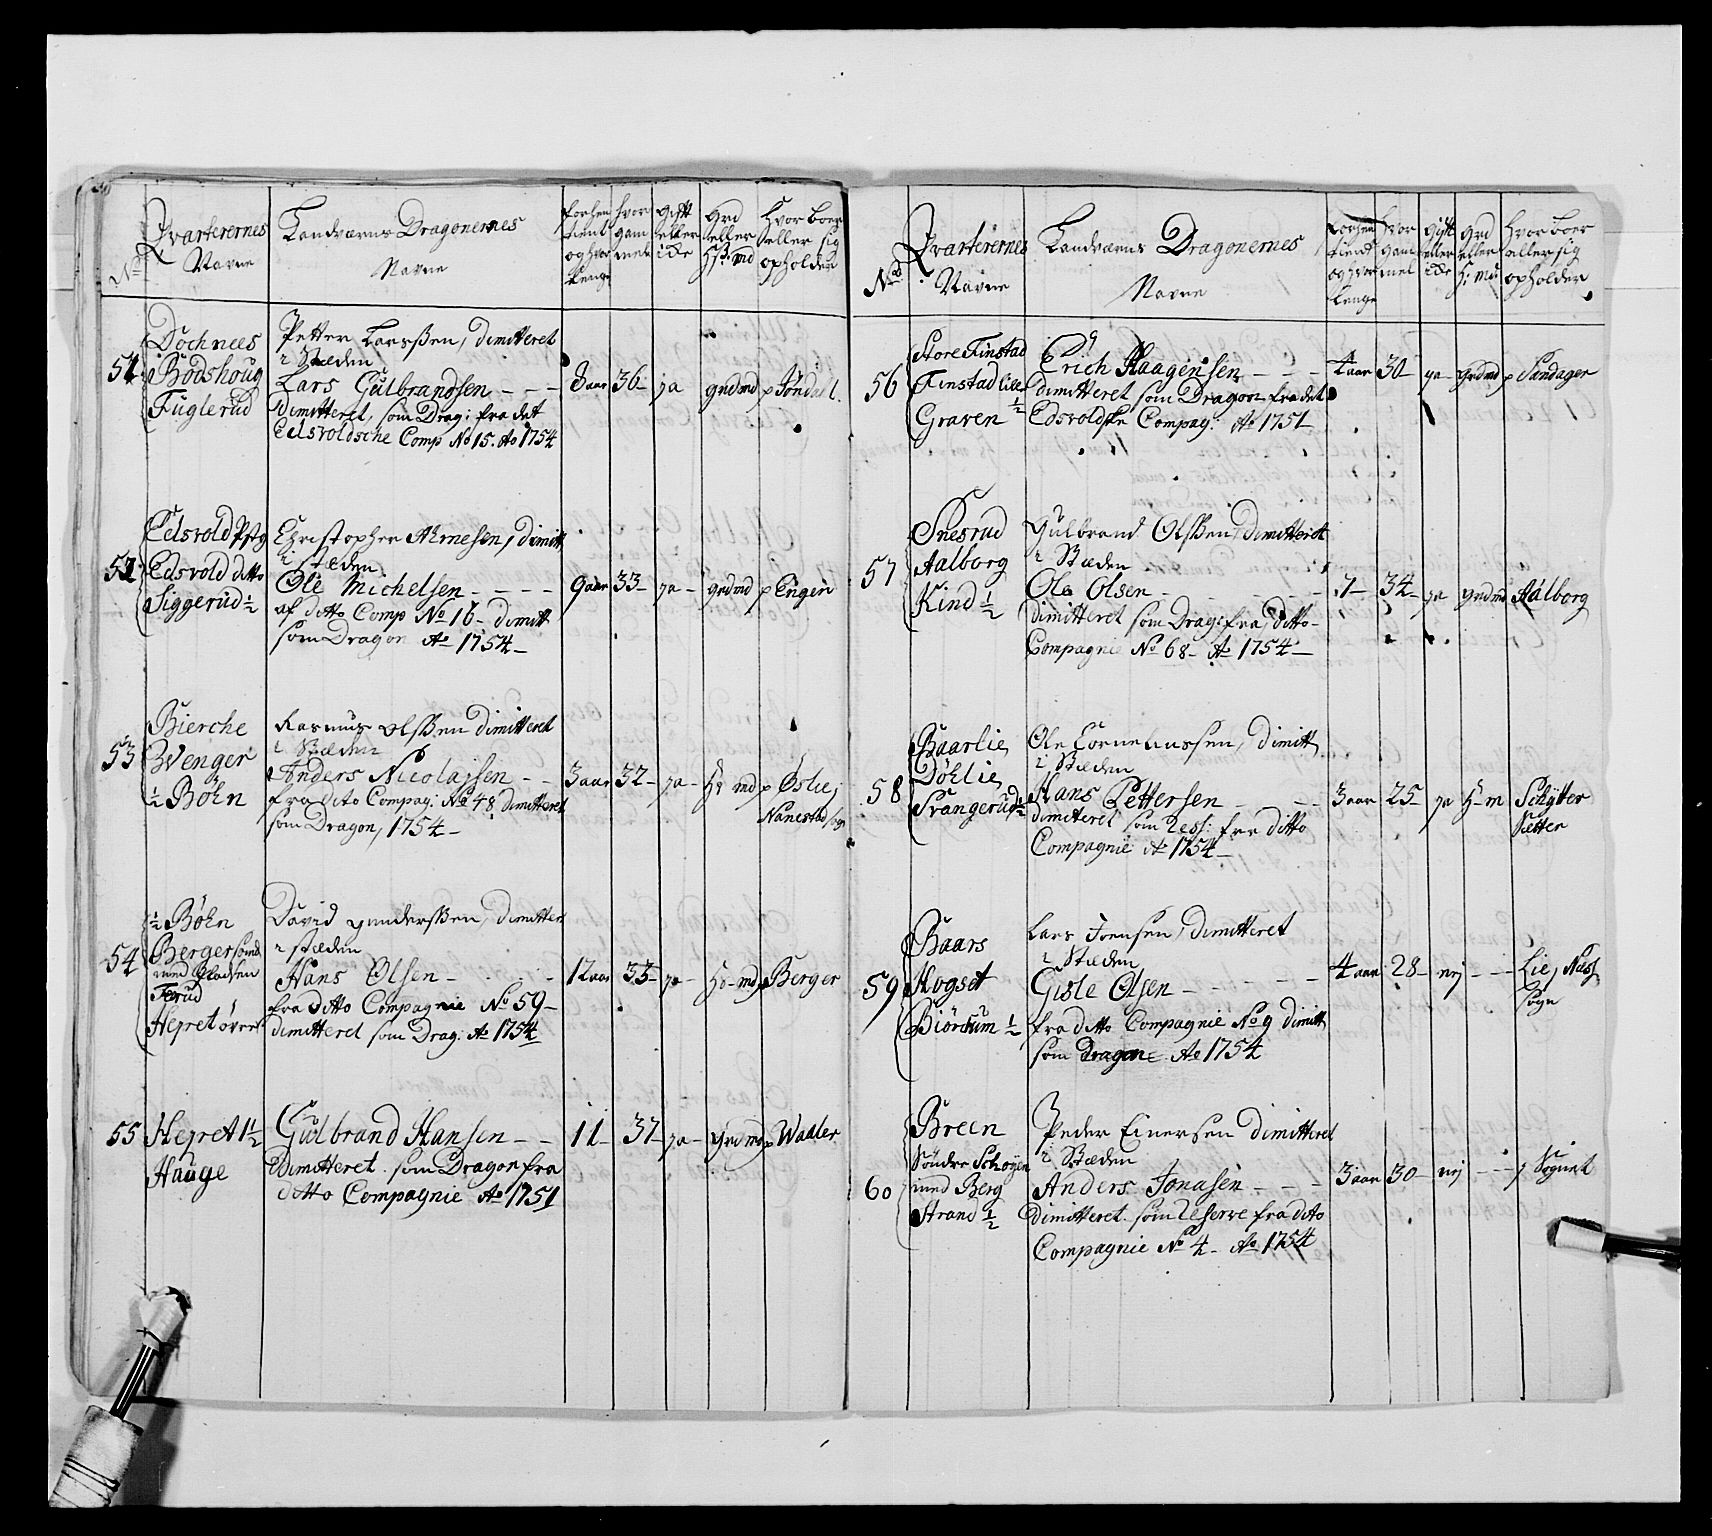 No
Qvarterernes
Navne
Landværns Dragonernes
Navne
forhen
tient
og hvor
lenge
hvor
gam
mel
Gift
eller
ide
Grd
eller
Hs: md
hvor boer
eller sig
opholder
51
Dochnees
Bodshoug
Fuglerud
Petter Larssen, dimitteret
i Stæden
Lars Gulbrandsen - - -
dimitteret som Drag: fra det
Edsvoldsche Comp No 15. Ao 1754
8 aar
36-
ja
grdmd
p Jøndahl.
52
Edsvold Pstg
Edsvold ditto
Siggerud ½
Christopher Arnesen, dimitt
i stæden
Ole Michelsen - - - -
af ditto Comp No 16- dimitt
som Dragon Ao 1754-
9 aar
33-
ja-
grdmd
p Engen
53
Bierche
Wenger
½ Böhn
Rasmus Olssen dimitteret
i Stæden
Anders Nicolajsen - -
fra dito Compag: No 48 dimitteret
som Dragon, 1754-
3 aar
32-
ja-
Hs md
p Østie,
Nanestad sogn
54
½ Bøhn
Berger
med Pladsen
Terud
Hepret øvre
David Anderssen, dimitter
i stæden
Hans Olsen - - - -
fra ditto Compagnie No 59-
dimitteret som Drag: Ao 1754
12 aar
33-
ja-
Hs-md
p Berger
55
Hepret 1½
Hauge
Gulbrand Hansen - -
Dimitteret som Dragon fra
ditto Compagnie Ao 1751
11-
37-
ja-
grdmd
p Waaler
No
Qvarterernes
Navne
Landværns Dragonernes
Navne
forhen
tient
og hvor
lenge
hvor
gam
mel
Gift
eller
ide
Grd
eller
H: md
hvor boer
eller sig
opholder
56
Store Finstad
Finstad lille
Graven ½
Erich Haagensen - - -
dimitteret som Dragon fra det
Edsvoldske Compag: Ao 1751
4 aar
30-
ja-
grdmd
p Sandager
57
Snesrud
Aalborg
Kind ½
Gulbrand Olssen, dimitteret
i Stæden
Ole Olsen - - - - -
dimitteret som Drag: fra ditto-
Compagnie No 68- Ao 1754-
7-
34-
ja
grdmd
Aalborg
58
Baarlie
Döhlie
Svangerud ½
Ole Cornelinssen, dimitt
i Stæden
Hans Pettersen - - -
dimitteret som Ress: fra ditto
Compagnie Ao 1754-
3 aar
25-
ja
H-m
Schÿtter
Sætter
59
Baars
Hogset
Biørtum ½
Lars Joensen, dimitteret
i Stæden
Gisle Olsen - - - - -
fra ditto Compagnie No 9 dimitt
som Dragon Ao 1754
4 aar
28-
nej
- - -
Lie, Nass
sogn
60
Breen
Söndre Schøyen
med Berg
Strand ½
Peder Einersen dimitteret
i Stæden
Anders Jonasen - - -
dimitteret som Reserve fra dito
Compagnie No 4- Ao 1754
3 aar
30-
nej
- - -
p Sognet